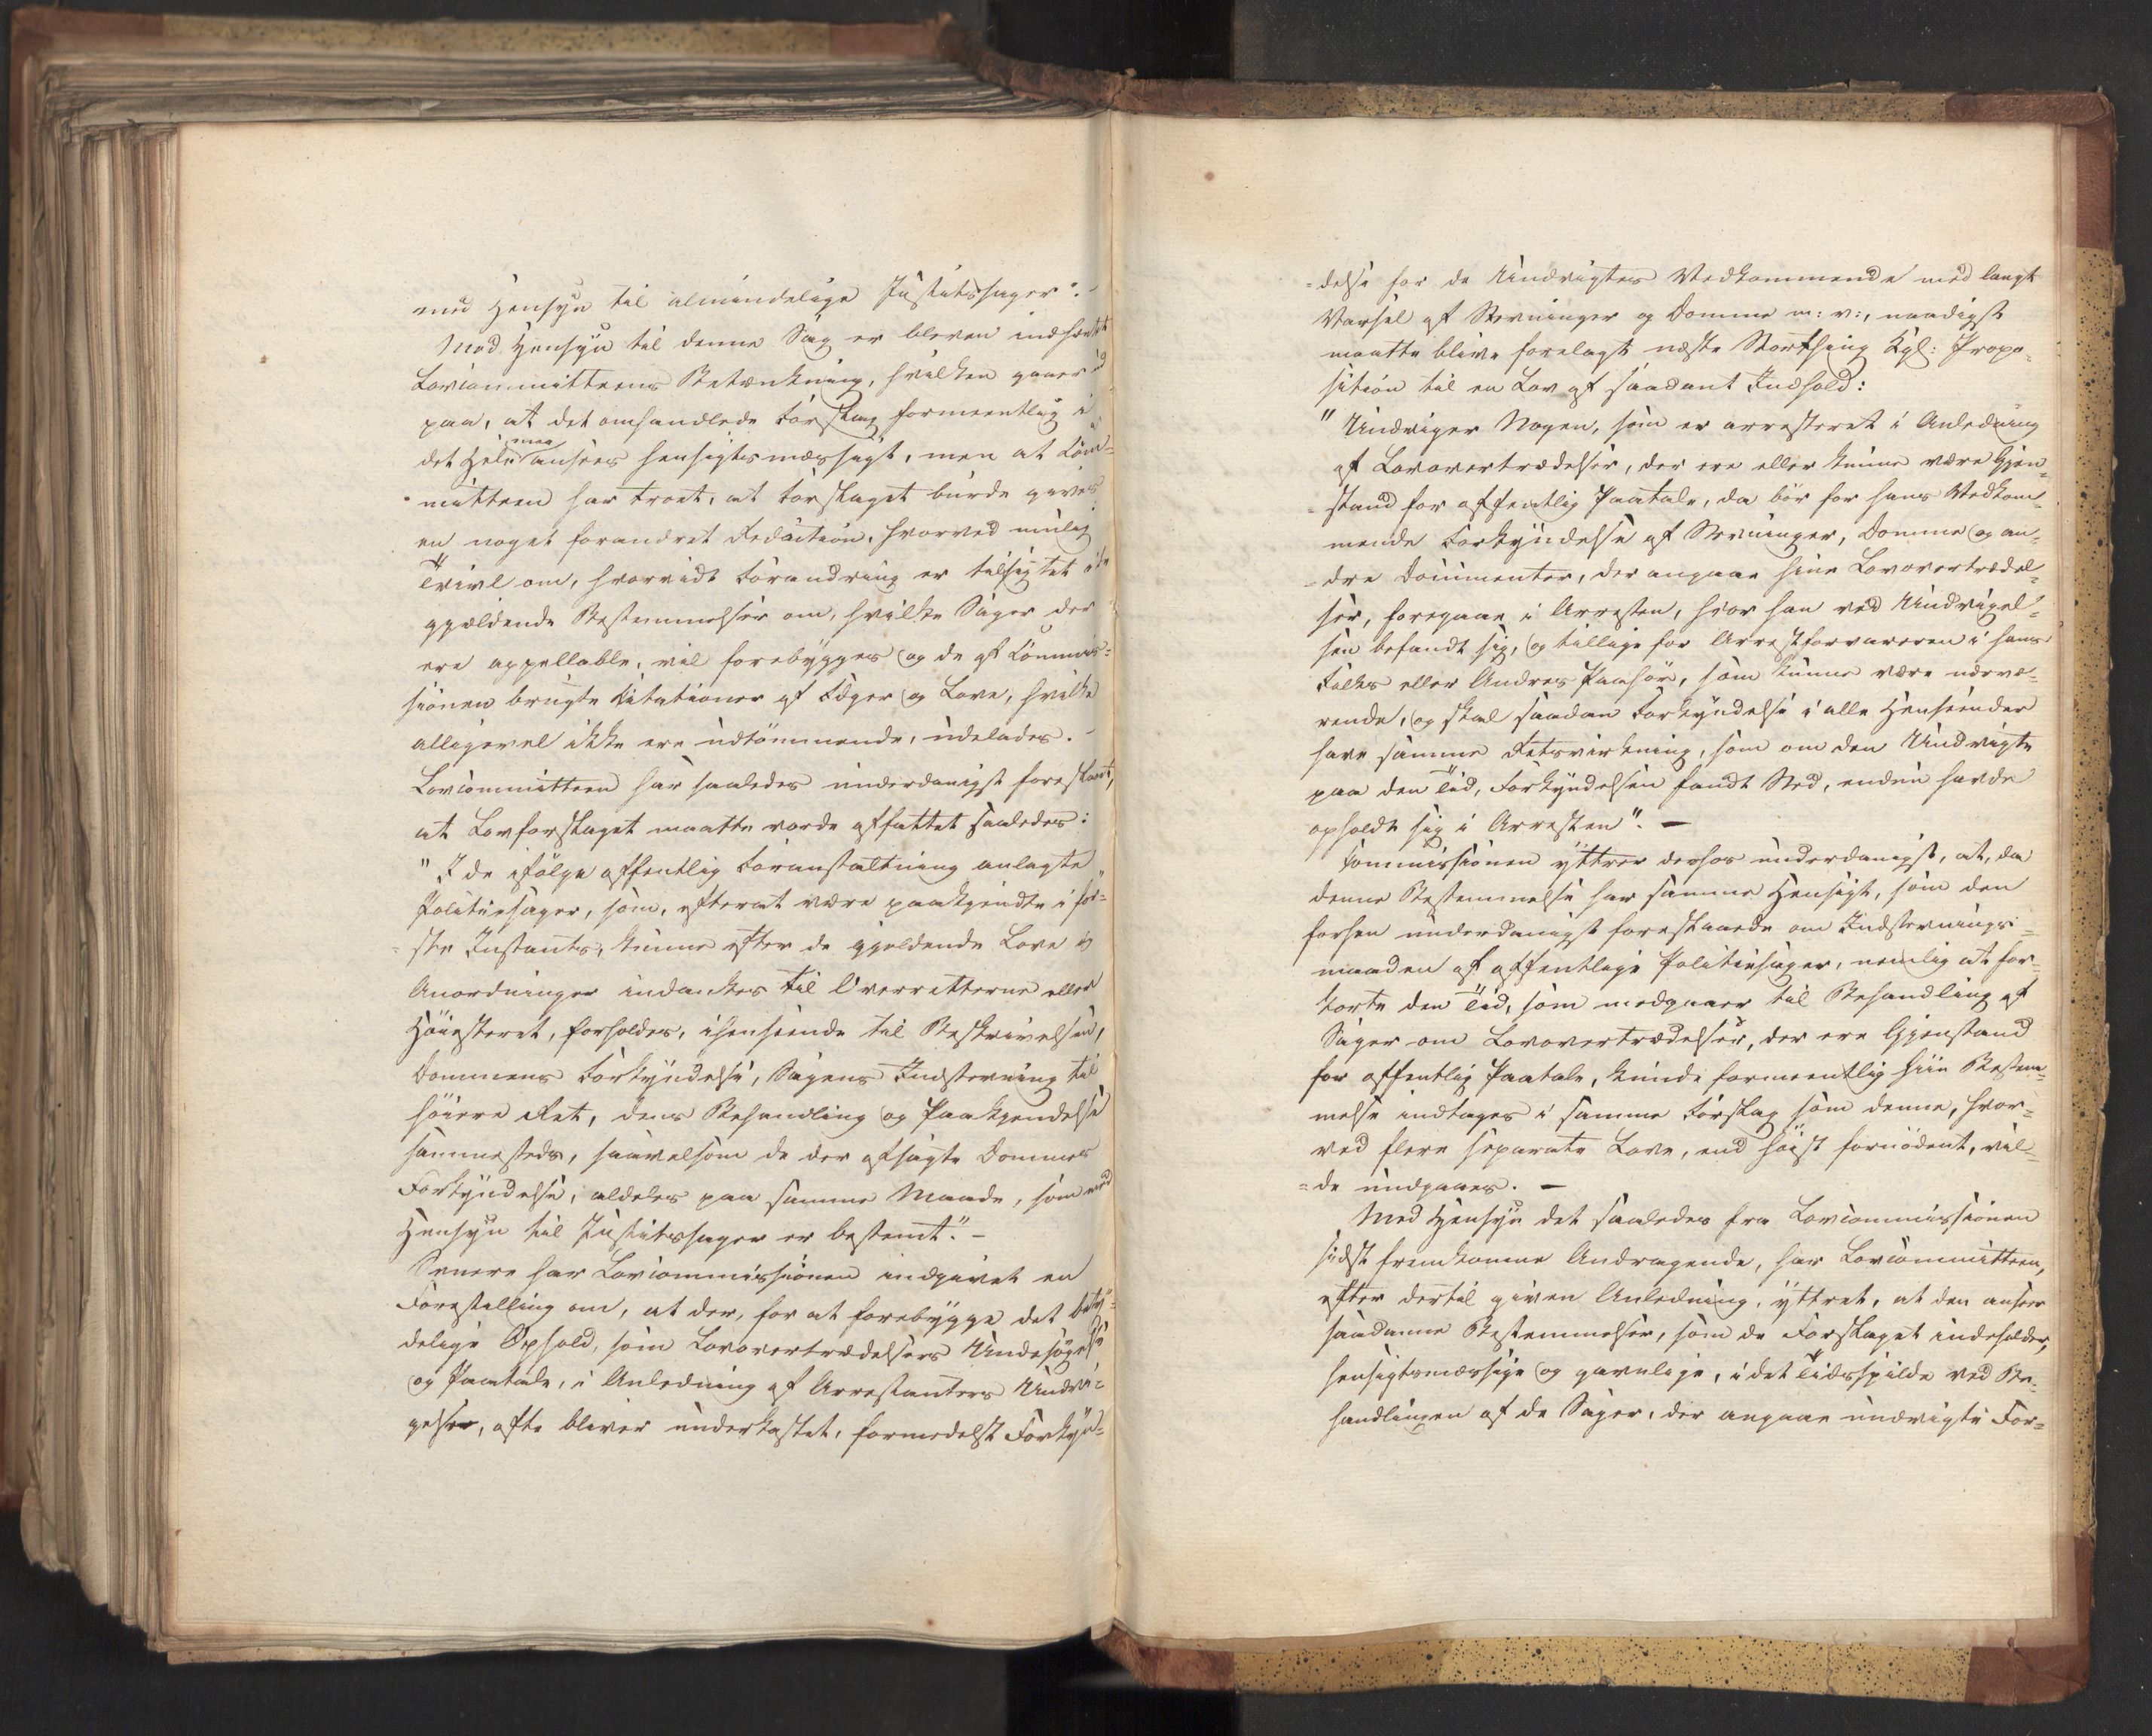 med Hensyn til almindelige Justitssager". -
Med Hensyn til denne Sag er bleven indhentet
Lovcommitteens Betænkning, hvilken gaaer ud
paa, at det omhandlede Forslag formeentlig i
det Hele maa ansees hensigtsmæssigt, men at Com-
mitteen har troet, at Forslaget burde gives
en noget forandret Redaction, hvorved mulig
Tvivl om, hvorvidt Forandring er tilsigtet i de
gjældende Bestemmelser om, hvilke Sager der
ere appellable, vil forebygges og de af Commis-
sionen brugte Citationer af Bøger og Love, hvilke
alligevel ikke ere udtømmende, udelades. -
Lovcommitteen har saaledes underdanigst foreslaaet,
at Lovforslaget maatte vorde affattet saaledes:
"I de ifølge offentlig Foranstaltning anlagte
Politiesager, som, efterat være paakjendte i før-
ste Instants, kunne efter de gjeldende Love og
Anordninger indankes til Overretterne eller
Høiesteret, forholdes, ihenseende til Beskrivelsen,
Dommens Forkyndelse, Sagens Indstevning til
høiere Ret, dens Behandling og Paakjendelse
sammesteds, saavelsom de der afsagte Dommes
Forkyndelse, aldeles paa samme Maade, som med
Hensyn til Justitssager er bestemt." -
Senere har Lovcommissionen indgivet en
Forestilling om, at der, for at forebygge det bety-
delige Ophold, som Lovovertrædelsers Undersøgelse
og Paatale, i Anledning af Arrestanters Undvi-
gelser, ofte bliver underkastet, formedelst Forkyn-
delse for de Undvigtes Vedkommende med langt
Varsel af Stevninger og Domme m: v:, naadigst
maatte blive forelagt næste Storthing Kgl: Propo-
sition til en Lov af saadant Indhold:
"Undviger Nogen, som er arresteret i Anledning
af Lovovertrædelser, der ere eller kunne være Gjen-
stand for offentlig Paatale, da bør for hans Vedkom-
mende Forkyndelse af Stevninger, Domme og an-
dre Documenter, der angaae hine Lovovertrædel-
ser, foregaae i Arresten, hvor han ved Undvigel-
sen befandt sig, og tillige for Arrestforvareren i hans
Folks eller Andres Paahør, som kunne være nærvæ-
rende, og skal saadan Forkyndelse i alle Henseender
have samme Retsvirkning, som om den Undvigte
paa den Tid, Forkyndelsen fandt Sted, endnu havde
opholdt sig i Arresten". -
Commissionen yttrer derhos underdanigst, at, da
denne Bestemmelse har samme Hensigt, som den
forhen underdanigst foreslaaede om Indstevnings-
maaden af offentlige Politiesager, nemlig at for-
korte den Tid, som medgaaer til Behandling af
Sager om Lovovertrædelser, der ere Gjenstand
for offentlig Paatale, kunde formeentlig hiin Bestem-
melse indtages i samme Forslag som denne, hvor-
ved flere separate Love, end høist fornødent, vil-
de undgaaes. -
Med Hensyn det saaledes fra Lovcommissionen
sidst fremkomne Andragende, har Lovcommitteen,
efter dertil given Anledning, yttret, at den anseer
saadanne Bestemmelser, som de Forslaget indeholder,
hensigtsmæssige og gavnlige, idet Tidsspilde ved Be-
handlingen af de Sager, der angaae undvigte For-